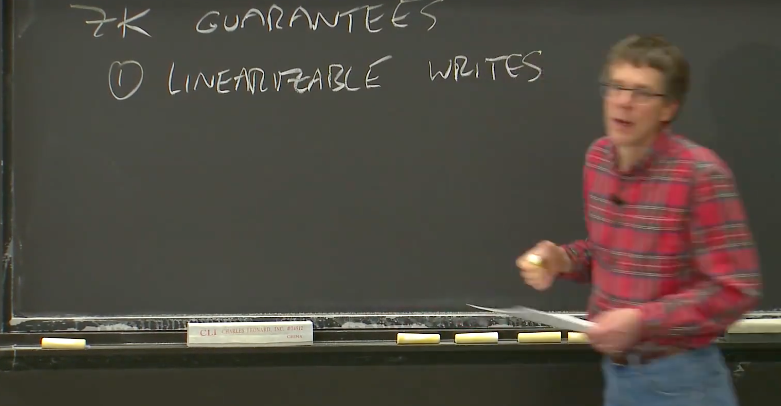 ZK GUARANTEES
① LINEARIZABLE WRITES